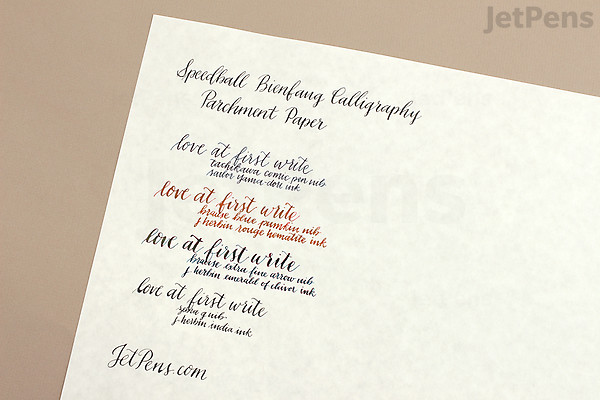 JetPens
Speedball Bienfang Calligraphy
Parchment Paper
love at first write
tachikawa comic pen nib
sailor yama-dori ink
love at first write
brause blue pumpkin nib
j herbin rouge hematite ink
love at first write
brause extra fine arrow nib
j herbin emerald of chivor ink
love at first write
zebra g nib
j herbin india ink
JetPens.com